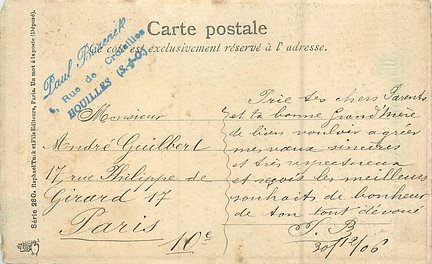 Carte postale
Ce côté est exclusivement réservé à l'adresse.
Paul
4, Rue de Croissy
HOUILLES (S.-&-O.)
Série 280. Raphael Tuck et Fils Editeurs, Paris. Un mot à la poste (Déposé).
Monsieur
André Guilbert
17 rue Philippe de
Girard 17
Paris
10e
Prie tes chers Parents
et ta bonne Grand'Mère
de bien vouloir agréer
mes vœux sincères
et très respectueux
et reçois les meilleurs
souhaits de bonheur
de ton tout dévoué
P. B
30/12/06